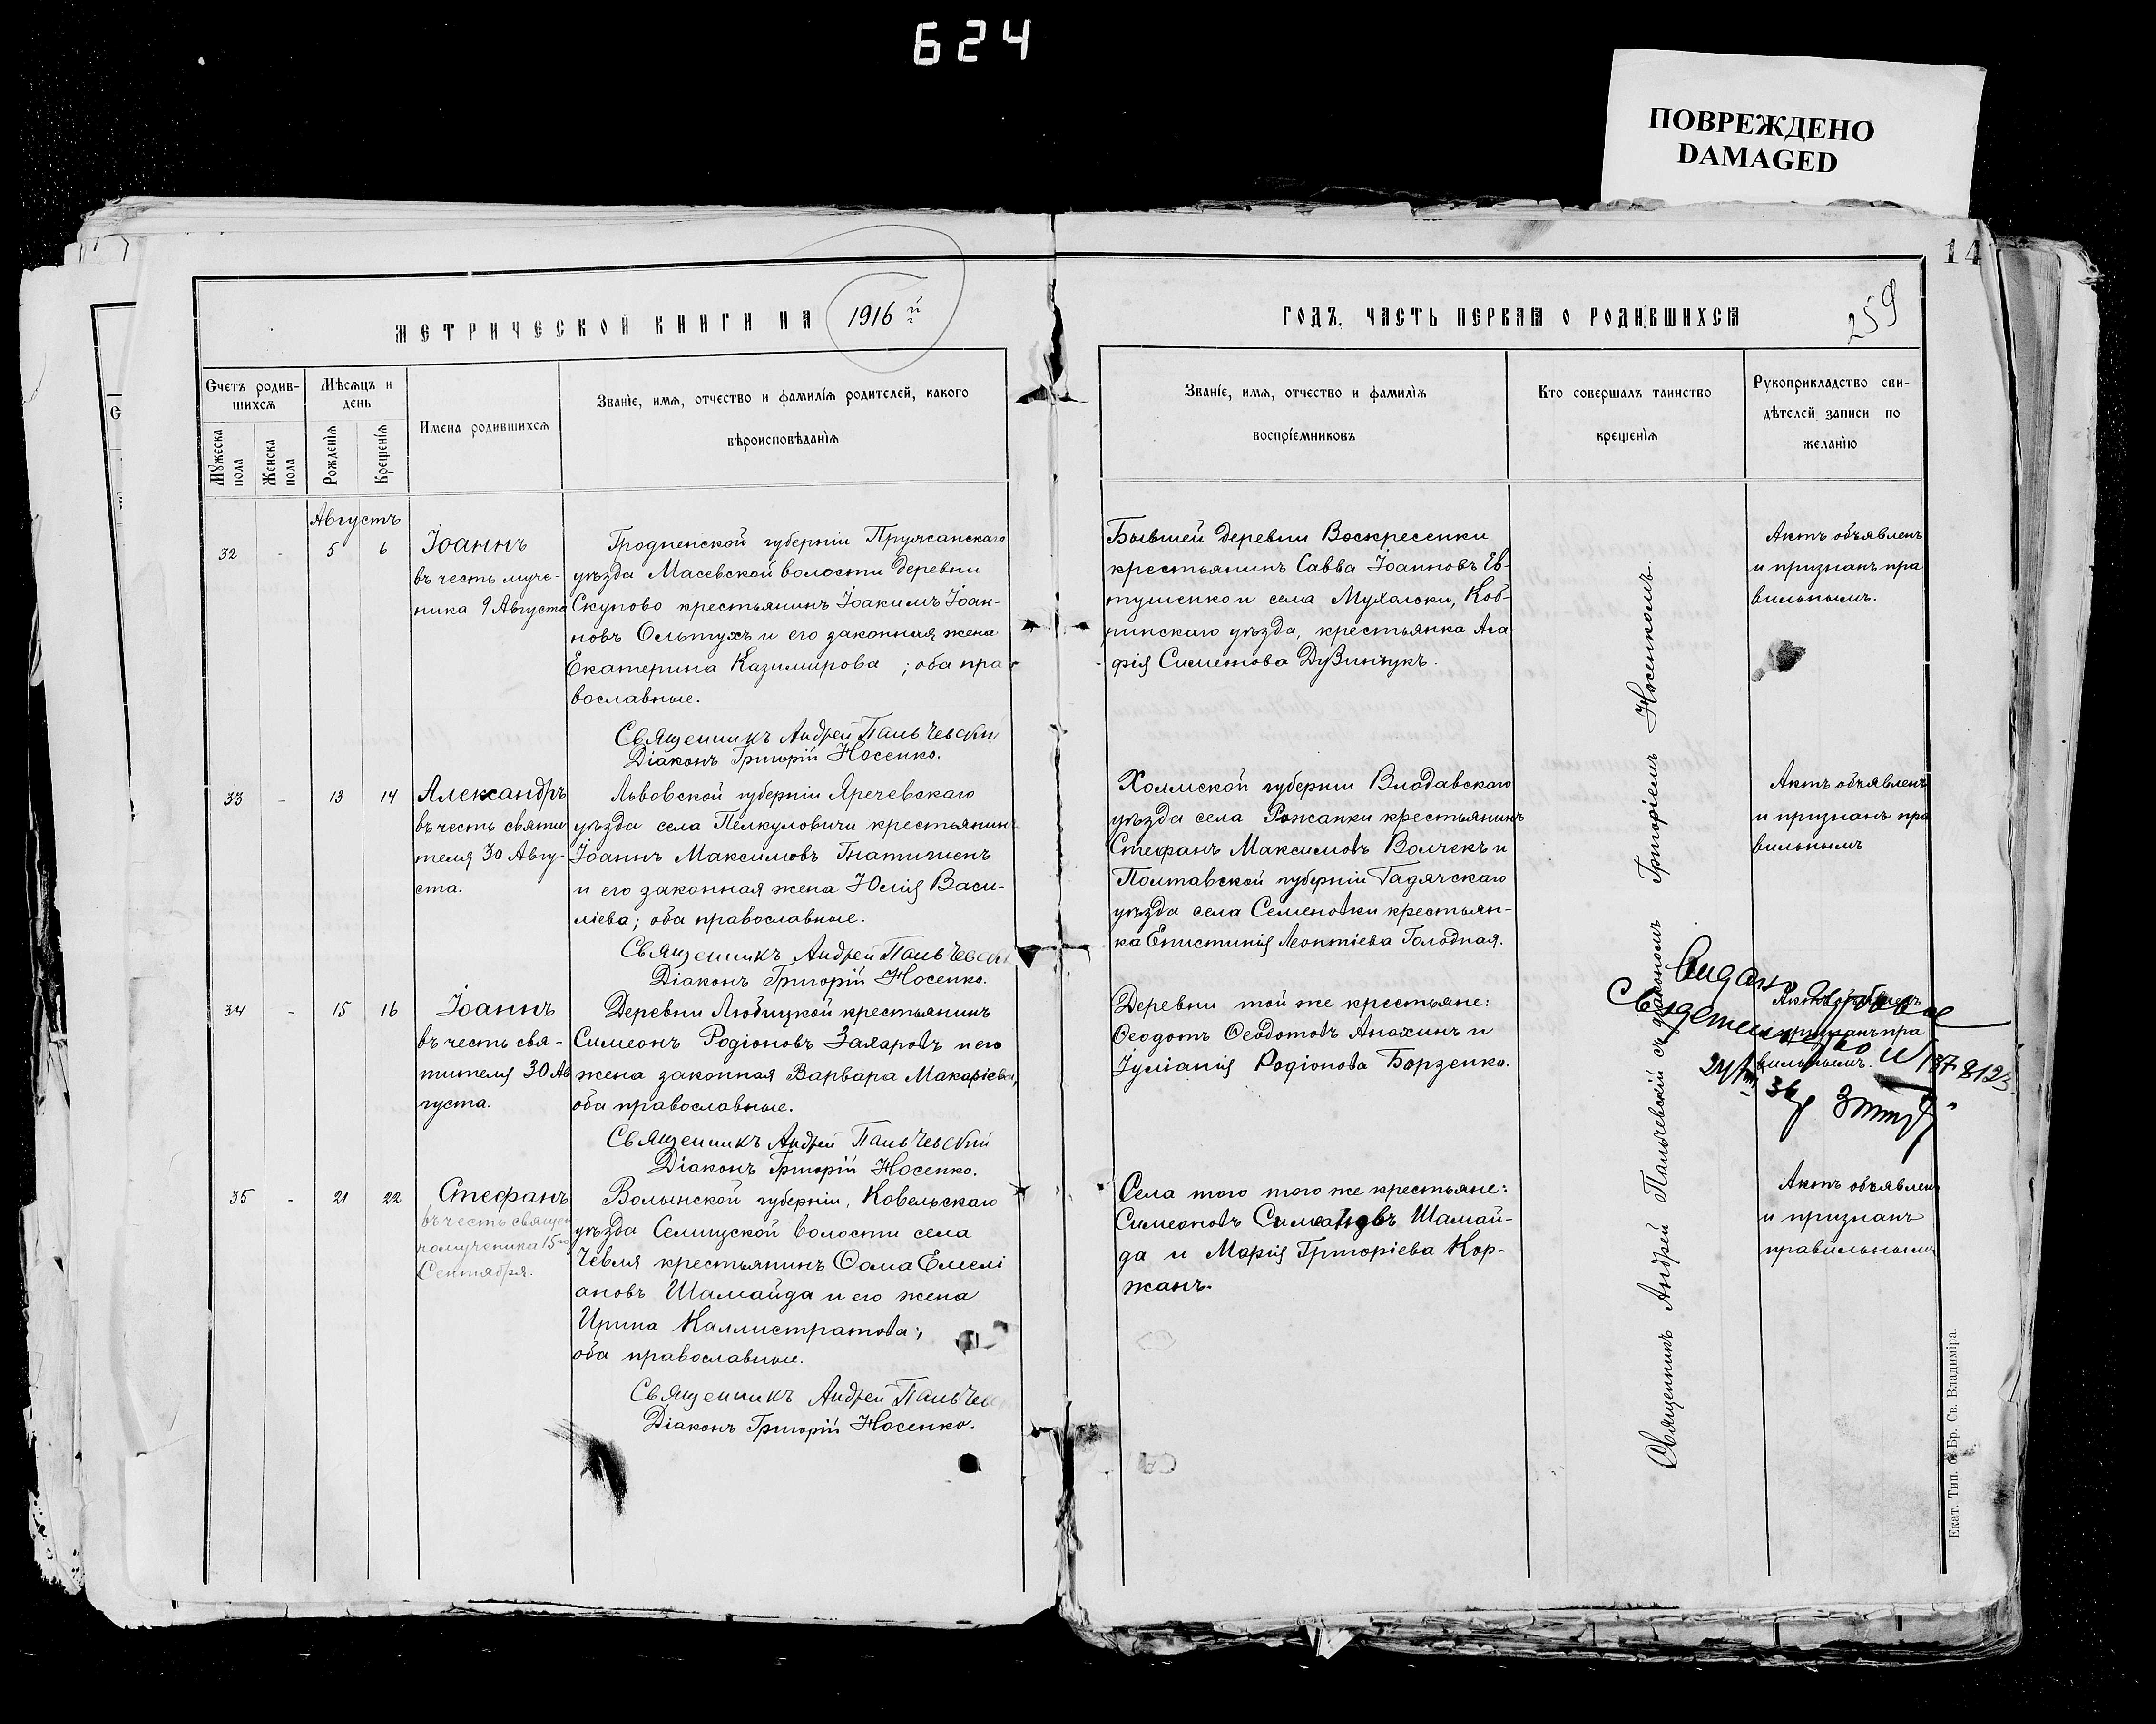 624
ПОВРЕЖДЕНО
DAMAGED
14
259
МЕТРИЧЕСКОЙ КНИГИ НА 1916 й
ГОДЪ. ЧАСТЬ ПЕРВАЯ О РОДИВШИХСЯ
Счетъ родив-
шихся
Мужеска пола
Женска пола
Мѣсяцъ и
день
Рожденія
Крещенія
Имена родившихся
Званіе, имя, отчество и фамилія родителей, какого
вѣроисповѣданія
Званіе, имя, отчество и фамилія
воспріемниковъ
Кто совершалъ таинство
крещенія
Рукоприкладство сви-
дѣтелей записи по
желанію
Августъ
32 - 5 6
Іоаннъ
въ честь муче-
ника 9 Августа
Гродненской губерніи Пружанскаго
уѣзда Масевской волости деревни
Скупово крестьянинъ Іоакимъ Іоан-
новъ Ольтухъ и его законная жена
Екатерина Казимирова ; оба пра
вославные.
Священникъ Андрей Пальчевскій
Діаконъ Григорій Носенко.
Бывшей деревни Воскресенки
крестьянинъ Савва Іоанновъ Ев-
тушенко и села Мухалоки, Коб-
ринскаго уѣзда, крестьянка Ага-
фія Симеонова Дузинчукъ.
Актъ объявленъ
и признанъ пра
вильнымъ.
33 - 13 14
Александръ
въ честь святи
теля 30 Авгу-
ста.
Львовской губерніи Яречевскаго
уѣзда села Пелкуловичи крестьянинъ
Іоаннъ Максимовъ Гнатишенъ
и его законная жена Юлія Васи-
ліева; оба православные.
Священникъ Андрей Пальчевск
Діаконъ Григорій Носенко.
Холмской губерніи Влодавскаго
уѣзда села Рожанки крестьянинъ
Стефанъ Максимовъ Волчекъ и
Полтавской губерніи Гадячскаго
уѣзда села Семеновки крестьян-
ка Епистинія Леонтіева Голодная.
Актъ объявленъ
и признанъ пра
вильнымъ
34 - 15 16
Іоаннъ
въ честь свя-
тителя 30 Ав
густа.
Деревни Любицкой крестьянинъ
Симеонъ Родіоновъ Захаровъ и его
жена законная Варвара Макаріева;
оба православные.
Священникъ Андрей Пальчевскій
Діаконъ Григорій Носенко.
Деревни той же крестьяне:
Ѳеодотъ Ѳеодотовъ Анохинъ и
Іуліанія Родіонова Борзенко.
Актъ объявленъ
и признанъ пра
вильнымъ.
35 - 21 22
Стефанъ
въ честь священ
номученика 15го
Сентября.
Волынской губерніи, Ковельскаго
уѣзда Селищской волости села
Чевля крестьянинъ Ѳома Емелі
ановъ Шамайда и его жена
Ирина Каллистратова;
оба православные.
Священникъ Андрей Пальчев
Діаконъ Григорій Носенко.
Села того того же крестьяне:
Симеоновъ Шамай-
да и Марія Григоріева Кор-
жанъ.
Актъ объявлен
и признанъ
правильнымъ
Священникъ Андрей Пальчевскій съ діакономъ Григоріемъ Носенкомъ.
Екат. Тип. С. Бр. Св. Владиміра.